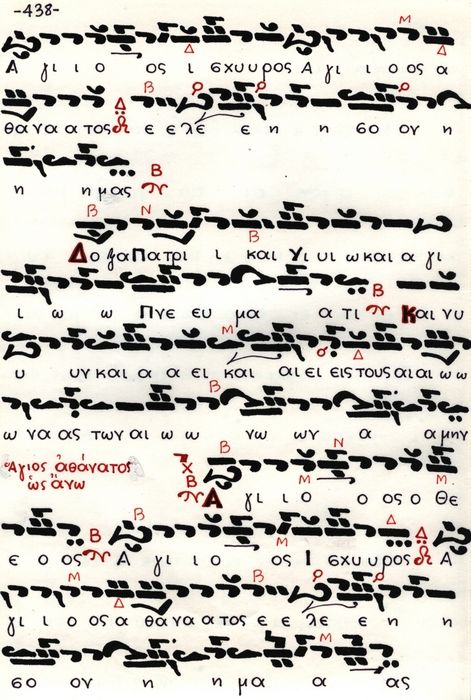 -438-
Α γι ι ο ος ι σχυυρος Α γι ι ος α
θα να α τος ε ε λε ε η η σο ον η
η η μας
Δο ξα Πα τρι ι και Υι υι ω και α γι
ι ω ω Πνε ευ μα α τι Και νυ
υ υν και α α ει και αι ει εις τους αι αι ω ω
ω να ας των αι ω ω νω ων α α μην
Ἅγιος ἀθάνατος
ὡς ἄνω
Α γι ι ο ο ος ο Θε
ε ο ος Α γι ι ο ος Ι σχυυρος Α
γι ι ος α θα να α τος ε ε λε ε η η
σο ον η η μα α ας